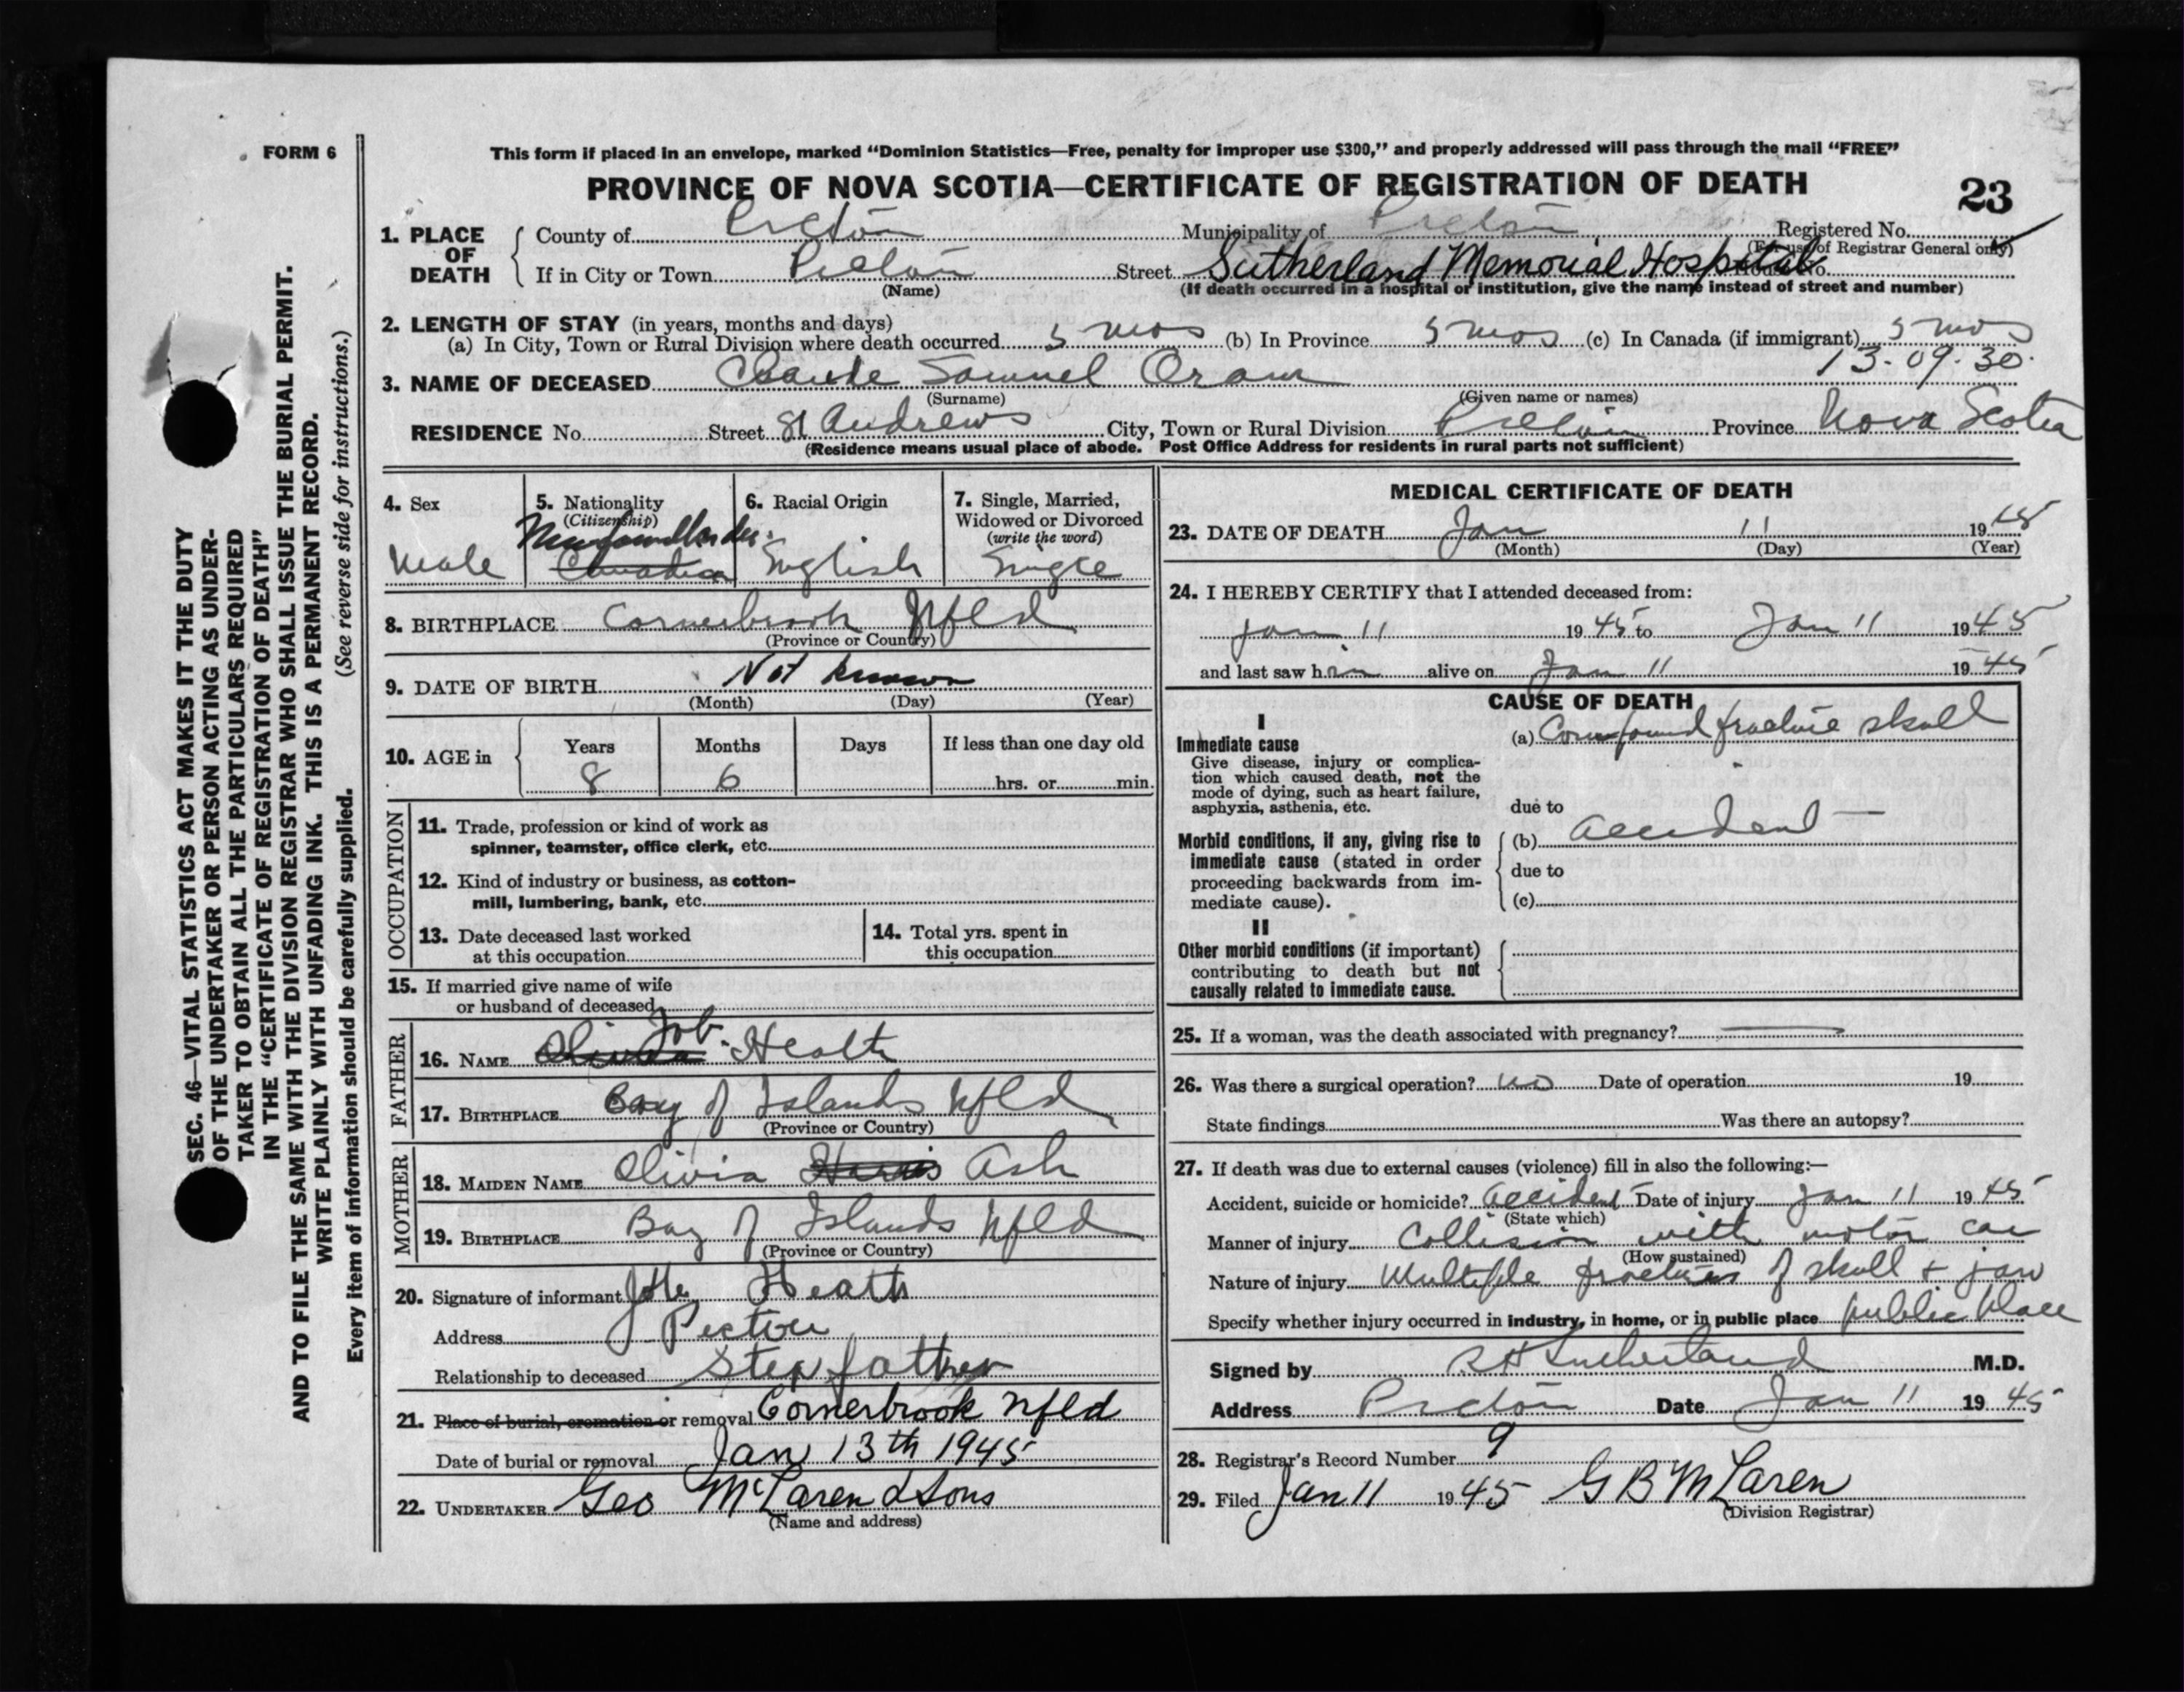 FORM 6
This form if placed in an envelope, marked “Dominion Statistics—Free, penalty for improper use $300,” and properly addressed will pass through the mail “FREE”
PROVINCE OF NOVA SCOTIA—CERTIFICATE OF REGISTRATION OF DEATH
23
1. PLACE OF DEATH
County of Pictou Municipality of Pictou Registered No.
(For use of Registrar General only)
If in City or Town Pictou Street Sutherland Memorial Hospital House No.
(Name) (If death occurred in a hospital or institution, give the name instead of street and number)
2. LENGTH OF STAY (in years, months and days)
(a) In City, Town or Rural Division where death occurred 5 mos (b) In Province 5 mos (c) In Canada (if immigrant) 5 mos
13-09-30
3. NAME OF DECEASED Claude Samuel Oram
(Surname) (Given name or names)
RESIDENCE No. Street St Andrews City, Town or Rural Division Pictou Province Nova Scotia
(Residence means usual place of abode. Post Office Address for residents in rural parts not sufficient)
4. Sex
Male
5. Nationality
(Citizenship)
Newfoundlander
Canadian
6. Racial Origin
English
7. Single, Married,
Widowed or Divorced
(write the word)
Single
8. BIRTHPLACE Cornerbrook Nfld
(Province or Country)
9. DATE OF BIRTH Not known
(Month) (Day) (Year)
10. AGE in
Years Months Days If less than one day old
8 6 hrs. or min.
OCCUPATION
11. Trade, profession or kind of work as
spinner, teamster, office clerk, etc.
12. Kind of industry or business, as cotton-
mill, lumbering, bank, etc.
13. Date deceased last worked
at this occupation
14. Total yrs. spent in
this occupation
15. If married give name of wife
or husband of deceased
FATHER
Job
16. NAME Heath
17. BIRTHPLACE Bay of Islands Nfld
(Province or Country)
MOTHER
18. MAIDEN NAME Olivia Harris Ash
19. BIRTHPLACE Bay of Islands Nfld
(Province or Country)
20. Signature of informant Heath
Address Pictou
Relationship to deceased Step father
21. Place of burial, cremation or removal Cornerbrook Nfld
Date of burial or removal Jan 13th 1945
22. UNDERTAKER Geo McLaren & Sons
(Name and address)
MEDICAL CERTIFICATE OF DEATH
23. DATE OF DEATH Jan 11 1945
(Month) (Day) (Year)
24. I HEREBY CERTIFY that I attended deceased from:
Jan 11 1945 to Jan 11 1945
and last saw him alive on Jan 11 1945
CAUSE OF DEATH
I
Immediate cause
Give disease, injury or complica-
tion which caused death, not the
mode of dying, such as heart failure,
asphyxia, asthenia, etc.
(a) Compound fracture skull
due to
Morbid conditions, if any, giving rise to
immediate cause (stated in order
proceeding backwards from im-
mediate cause).
(b) accident
due to
(c)
II
Other morbid conditions (if important)
contributing to death but not
causally related to immediate cause.
25. If a woman, was the death associated with pregnancy?
26. Was there a surgical operation? no Date of operation 19
State findings Was there an autopsy?
27. If death was due to external causes (violence) fill in also the following:—
Accident, suicide or homicide? accident Date of injury Jan 11 1945
(State which)
Manner of injury Collision with motor car
(How sustained)
Nature of injury Multiple fractures of skull & jaw
Specify whether injury occurred in industry, in home, or in public place public place
Signed by R H Sutherland M.D.
Address Pictou Date Jan 11 1945
28. Registrar's Record Number 9
29. Filed Jan 11 1945 G B McLaren
(Division Registrar)
SEC. 46—VITAL STATISTICS ACT MAKES IT THE DUTY
OF THE UNDERTAKER OR PERSON ACTING AS UNDER-
TAKER TO OBTAIN ALL THE PARTICULARS REQUIRED
IN THE “CERTIFICATE OF REGISTRATION OF DEATH”
AND TO FILE THE SAME WITH THE DIVISION REGISTRAR WHO SHALL ISSUE THE BURIAL PERMIT.
WRITE PLAINLY WITH UNFADING INK. THIS IS A PERMANENT RECORD.
Every item of information should be carefully supplied. (See reverse side for instructions.)